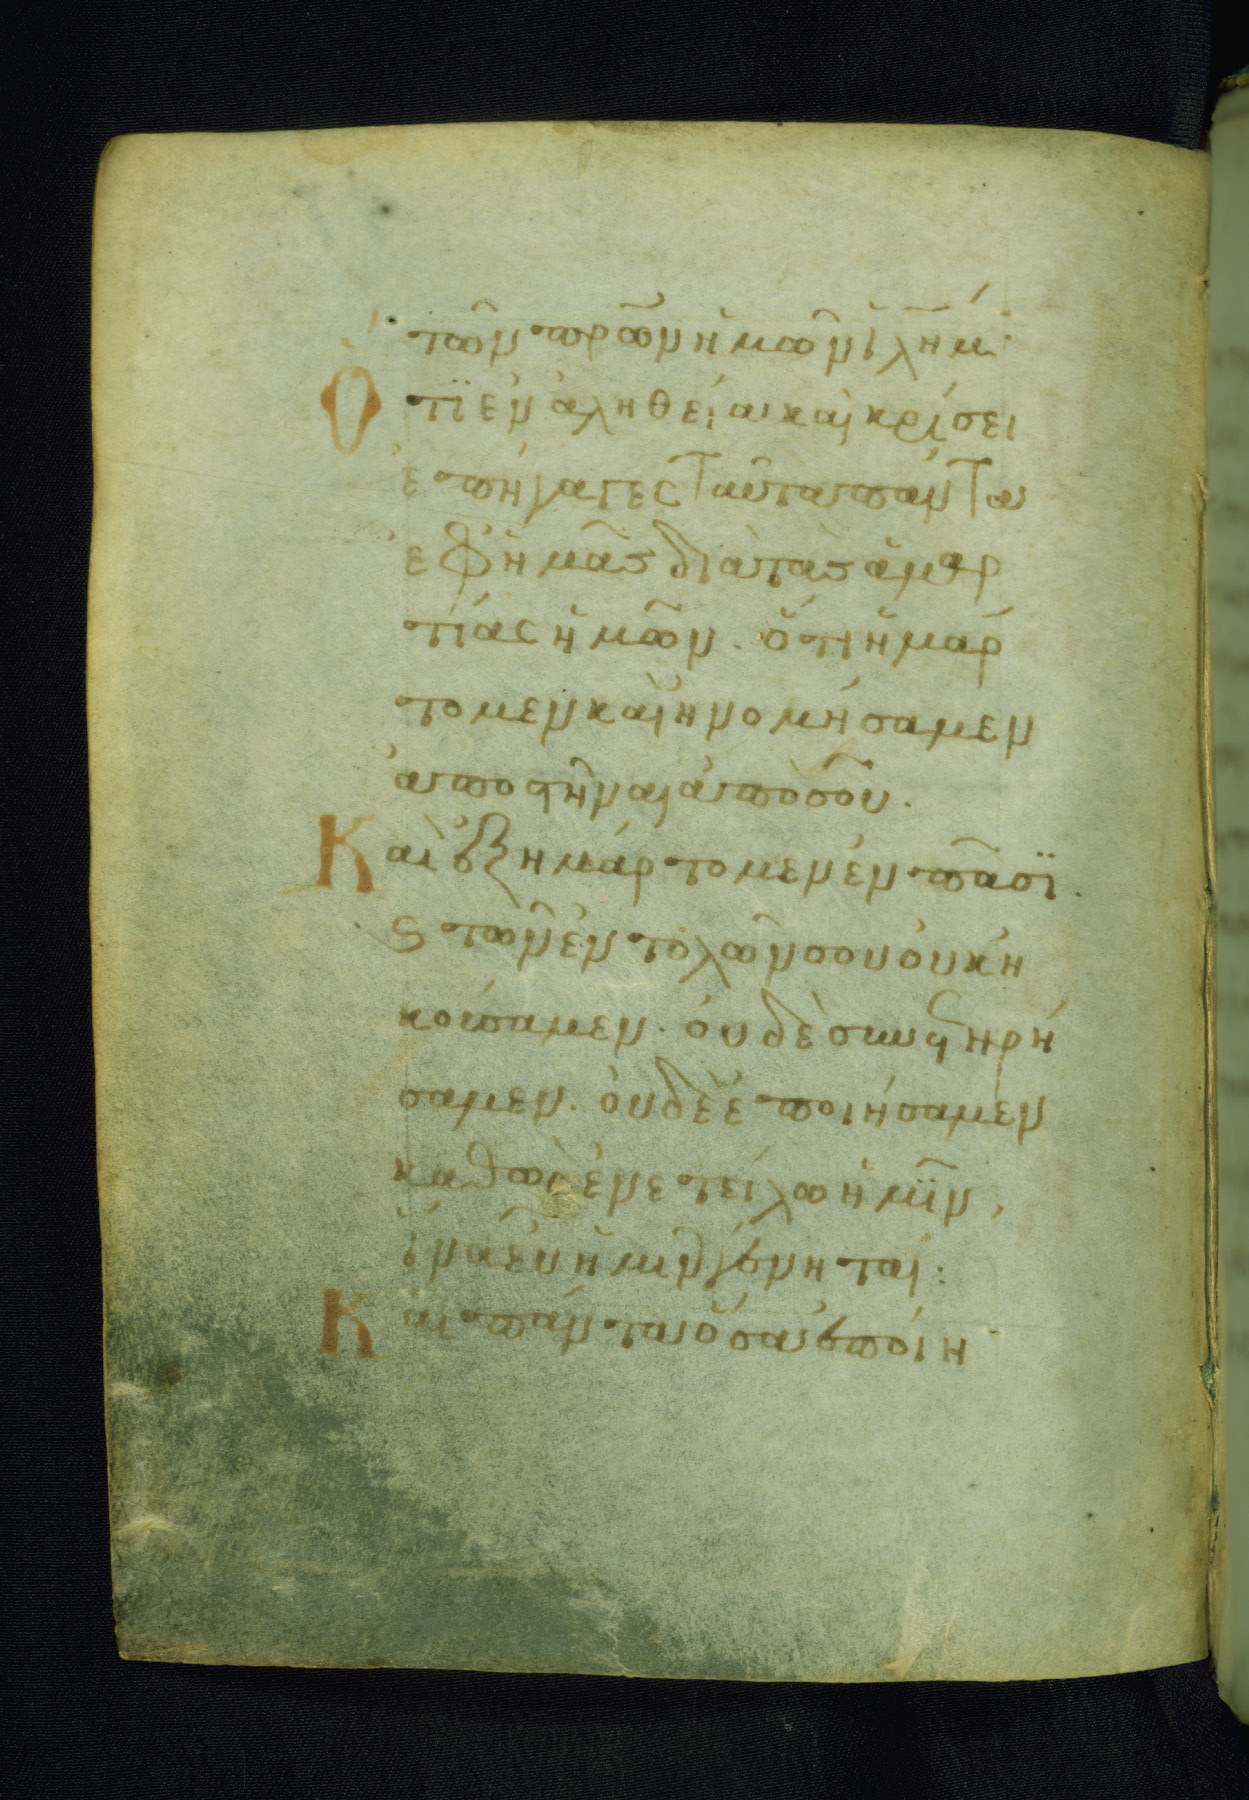 τῶν πρων ἡμῶν ἰλήμ:
Ὅτι ἐν ἀληθείαι καὶ κρίσει
ἐπήγαγες ταῦτα πάντα
ἐφ ἡμᾶς διὰ τὰς ἁμαρ
τίας ἡμῶν. ὅτι ἡμάρ
τομεν καὶ ἠνομήσαμεν
ἀποστῆναι ἀπὸ σοῦ.
Καὶ ἐξημάρτομεν ἐν πᾶσϊ.
ϛ τῶν ἐντολῶν σου οὐκ ἠ
κούσαμεν. οὐδὲ συνετηρή
σαμεν. οὐδὲ ἐποιήσαμεν
καθὼς ἐνετείλω ἡμῖν,
ἵνα εὖ ἡμῖν γένηται:
Καὶ πάντα ὅσα ἐποίη